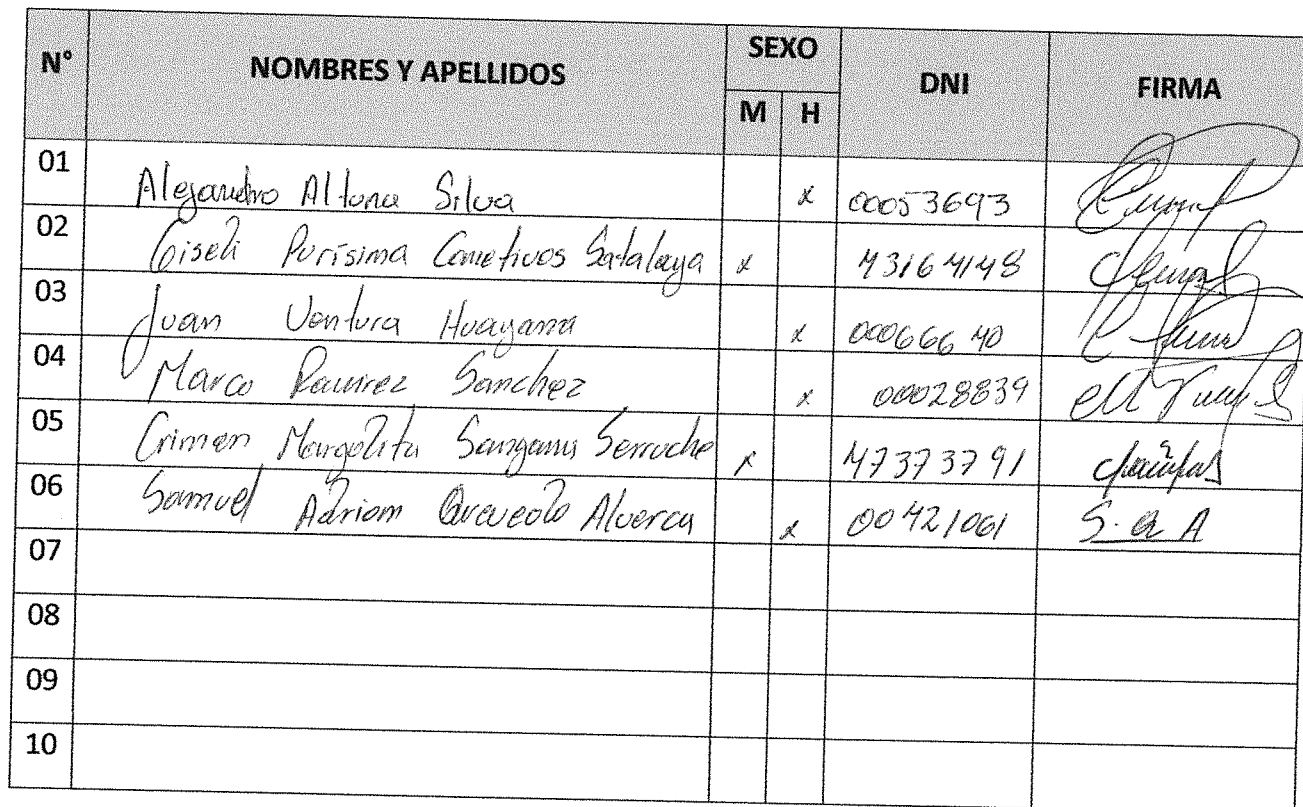 N° NOMBRES Y APELLIDOS SEXO DNI FIRMA
M H
01 Alejandro Altuna Silva x 00053693
02 Giseli Purísima Cometivos Satalaya x 43164148
03 Juan Ventura Huayama x 00066640
04 Marco Ramirez Sanchez x 00028839
05 Crimen Margolita Sangama Serruche x 47373791
06 Samuel Adriam Alverca x 00421061 S. Q A
07
08
09
10